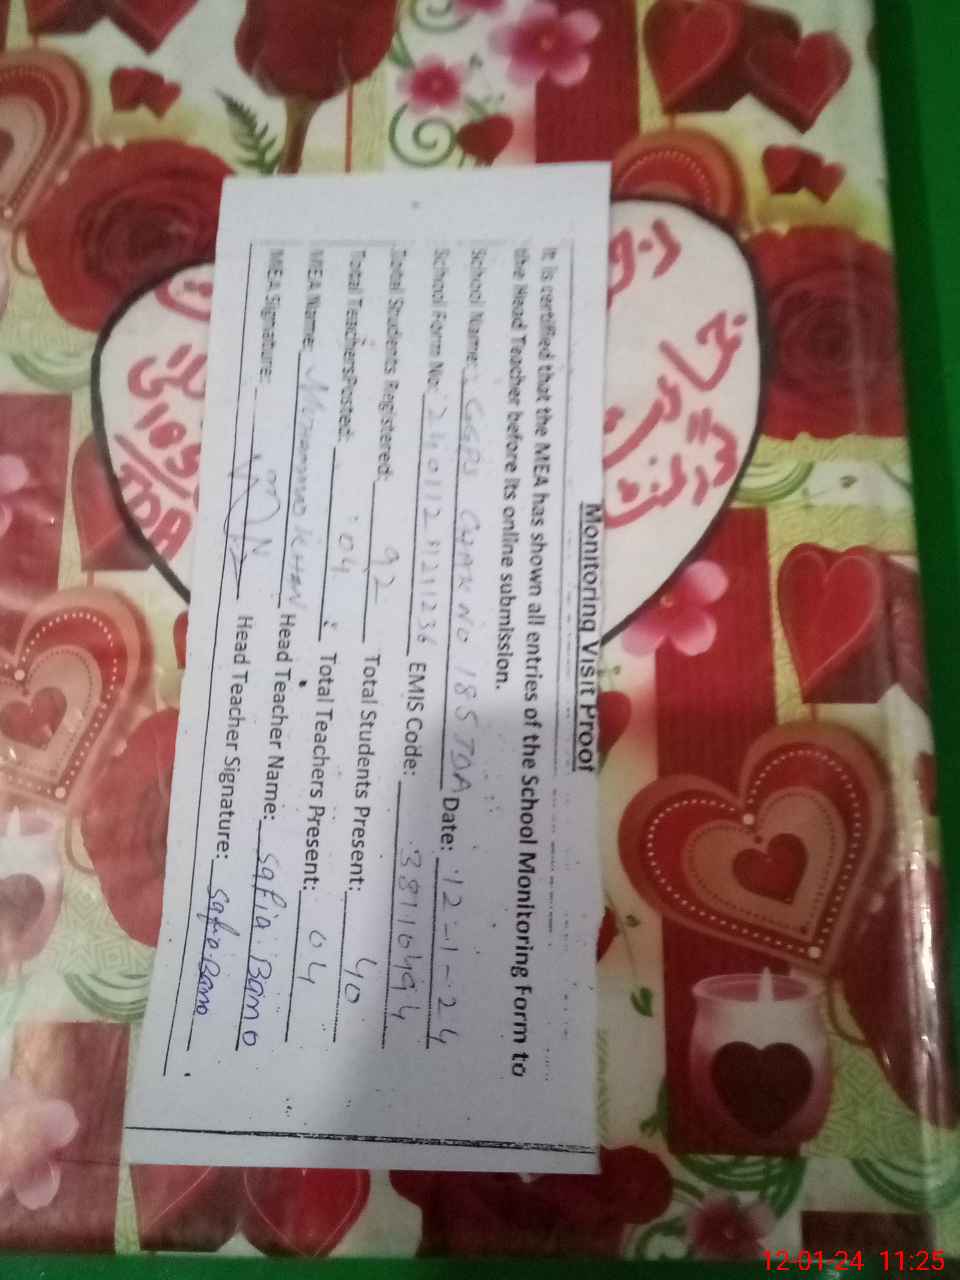 Monitoring Visit Proof
It is certified that the MEA has shown all entries of the School Monitoring Form to
the Head Teacher before its online submission.
School Name: GGPS CHAK NO 185 TDA Date: 12-1-24
School Form No: EMIS Code: 38110494
Total Students Registered: 92 Total Students Present: 40
Total Teachers Posted: 04 Total Teachers Present: 04
MEA Name: Head Teacher Name: Safia Bano
MEA Signature: Head Teacher Signature: Safia Bano
185/TDA
12-01-24 11:25